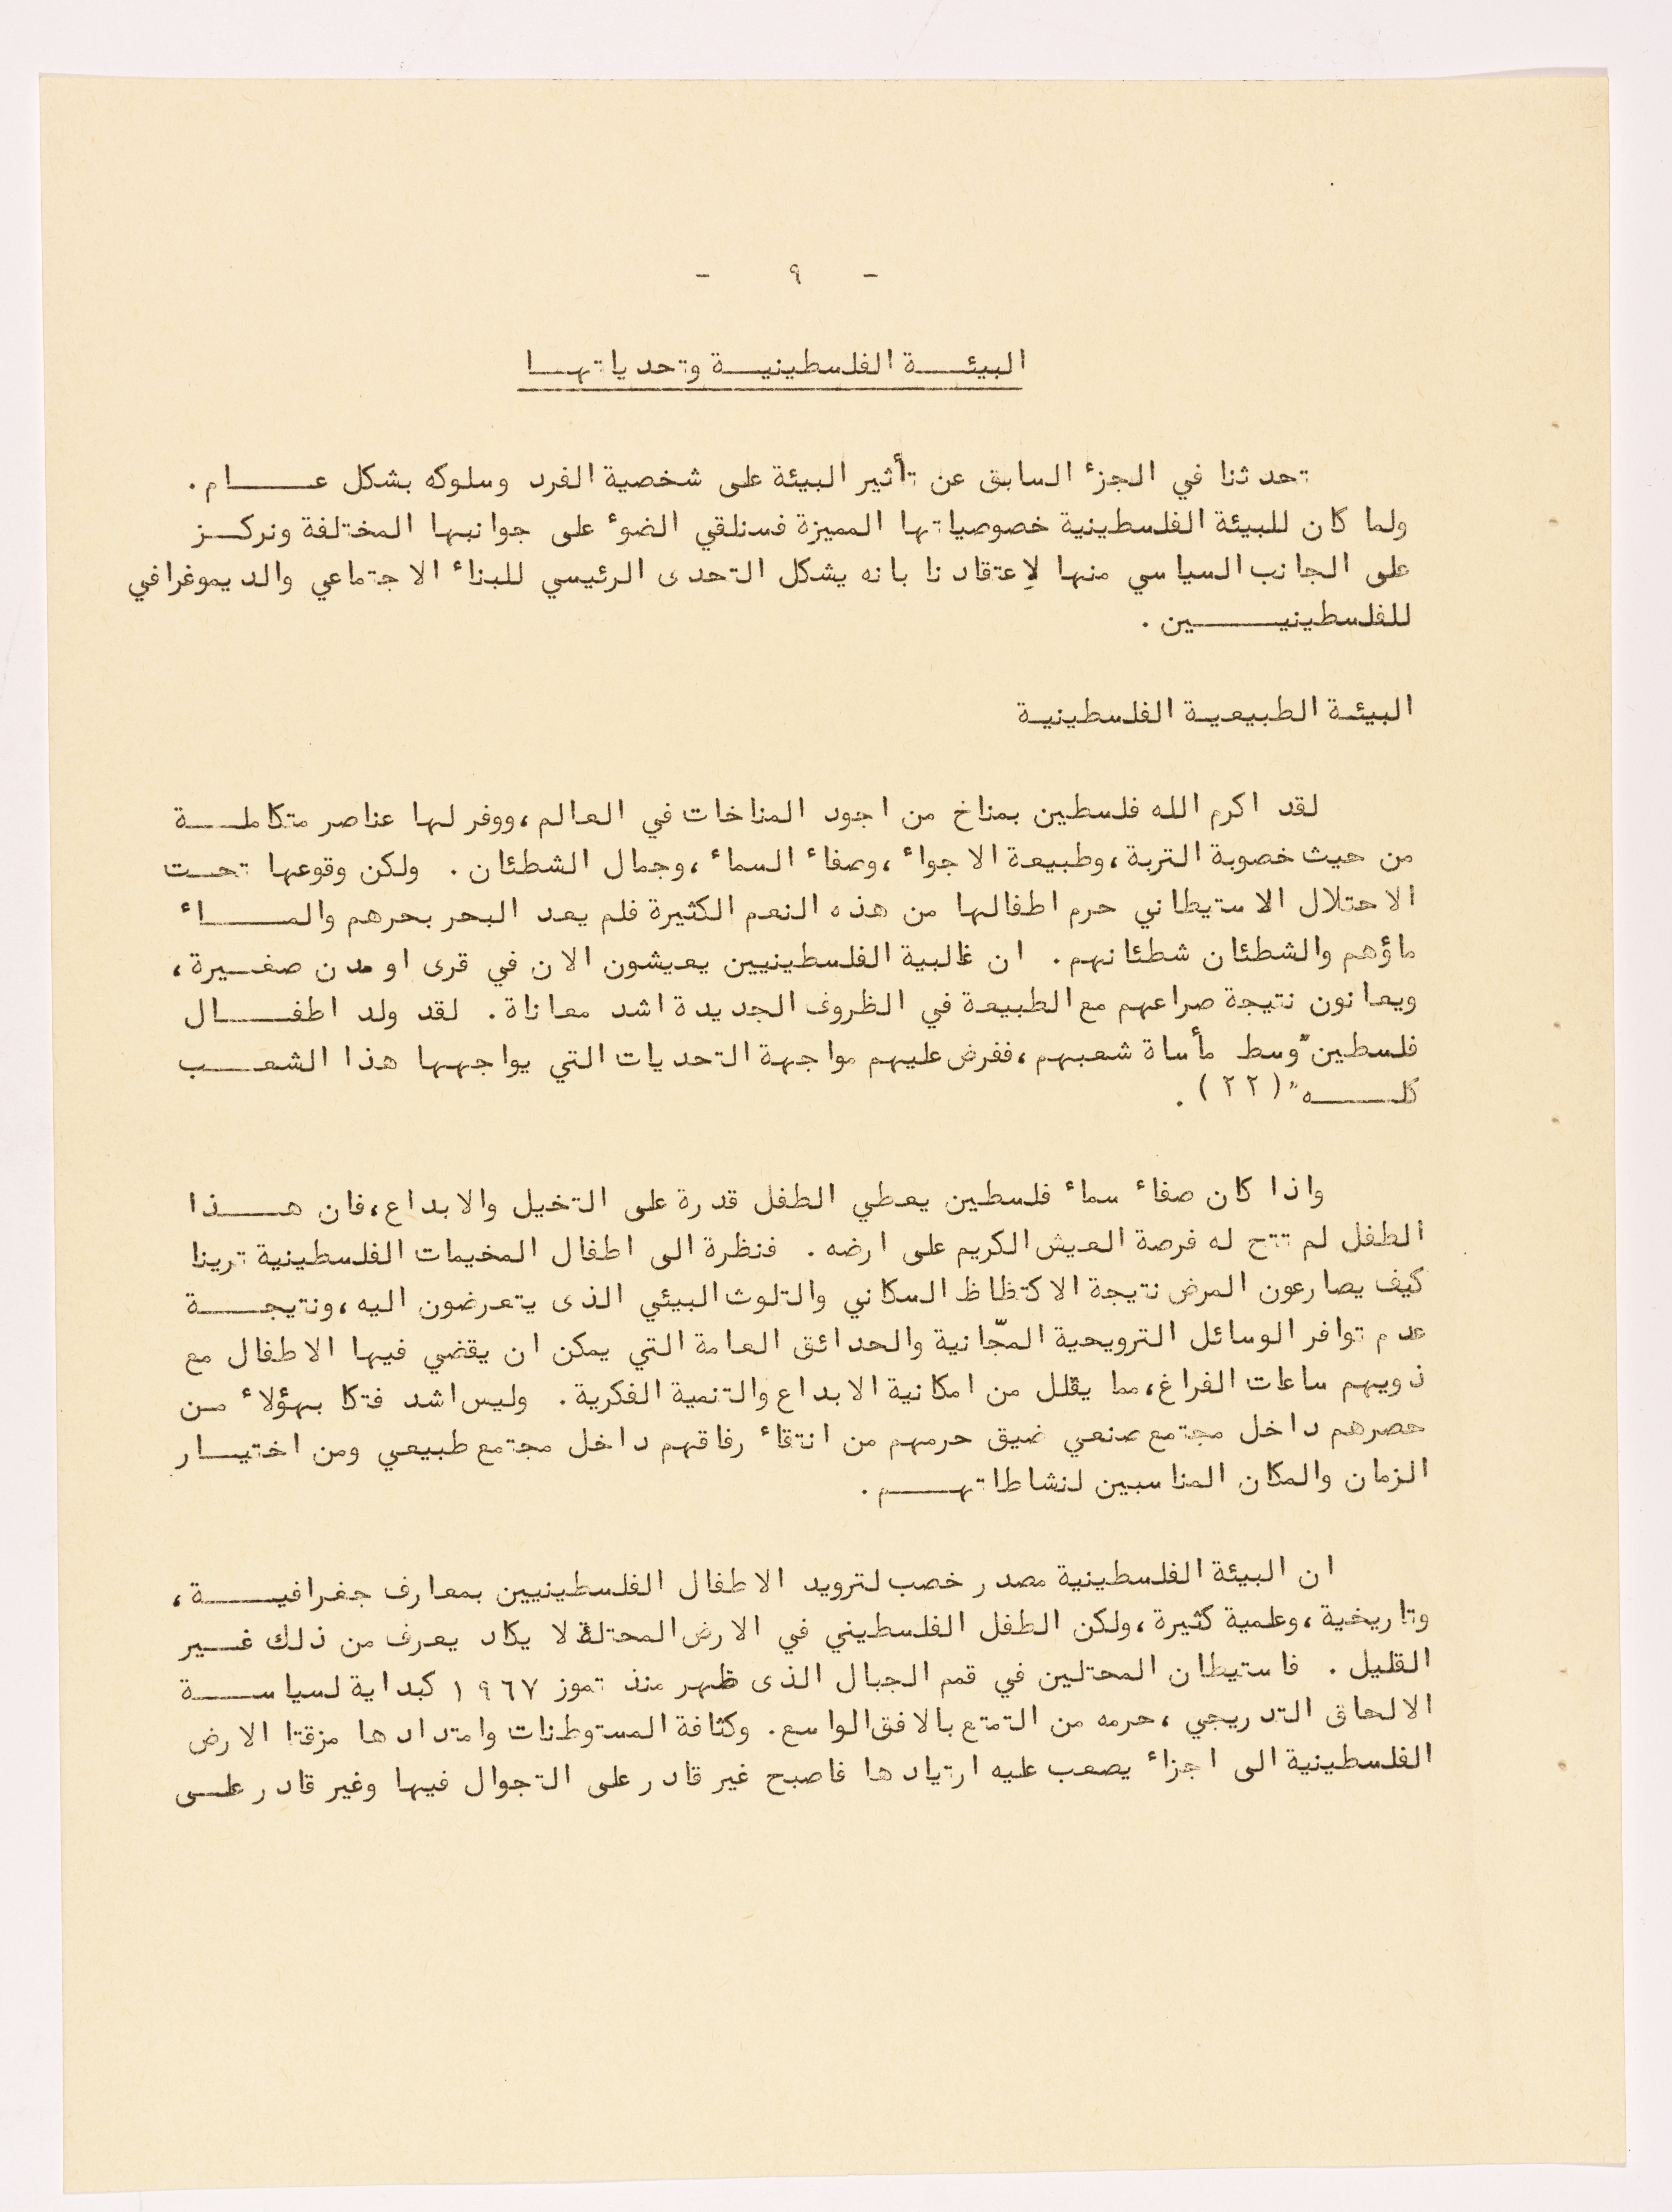 - ٩ -
البيئة الفلسطينية وتحدياتها
تحدثنا في الجزء السابق عن تأثير البيئة على شخصية الفرد وسلوكه بشكل عام.
ولما كان للبيئة الفلسطينية خصوصياتها المميزة فسنلقي الضوء على جوانبها المختلفة ونركز
على الجانب السياسي منها لإعتقادنا بانه يشكل التحدى الرئيسي للبناء الاجتماعي والديموغرافي
للفلسطينيين.
البيئة الطبيعية الفلسطينية
لقد اكرم الله فلسطين بمناخ من اجود المناخات في العالم، ووفر لها عناصر متكاملة
من حيث خصوبة التربة، وطبيعة الاجواء، وصفاء السماء، وجمال الشطئان. ولكن وقوعها تحت
الاحتلال الاستيطاني حرم اطفالها من هذه النعم الكثيرة فلم يعد البحر بحرهم والماء
ماؤهم والشطئان شطئانهم. ان غالبية الفلسطينيين يعيشون الان في قرى او مدن صغيرة،
ويعانون نتيجة صراعهم مع الطبيعة في الظروف الجديدة اشد معاناة. لقد ولد اطفال
فلسطين "وسط مأساة شعبهم، ففرض عليهم مواجهة التحديات التي يواجهها هذا الشعب
كله" (٢٢).
واذا كان صفاء سماء فلسطين يعطي الطفل قدرة على التخيل والابداع، فان هذا
الطفل لم تتح له فرصة العيش الكريم على ارضه. فنظرة الى اطفال المخيمات الفلسطينية ترينا
كيف يصارعون المرض نتيجة الاكتظاظ السكاني والتلوث البيئي الذى يتعرضون اليه، ونتيجة
عدم توافر الوسائل الترويحية المجّانية والحدائق العامة التي يمكن ان يقضي فيها الاطفال مع
ذويهم ساعات الفراغ، مما يقلل من امكانية الابداع والتنمية الفكرية. وليس اشد فتكا بهؤلاء من
حصرهم داخل مجتمع صنعي ضيق حرمهم من انتقاء رفاقهم داخل مجتمع طبيعي ومن اختيار
الزمان والمكان المناسبين لنشاطاتهم.
ان البيئة الفلسطينية مصدر خصب لترويد الاطفال الفلسطينيين بمعارف جغرافية،
وتاريخية، وعلمية كثيرة، ولكن الطفل الفلسطيني في الارض المحتلة لا يكاد يعرف من ذلك غير
القليل. فاستيطان المحتلين في قمم الجبال الذى ظهر منذ تموز ١٩٦٧ كبداية لسياسة
الالحاق التدريجي، حرمه من التمتع بالافق الواسع. وكثافة المستوطنات وامتدادها مزقتا الارض
الفلسطينية الى اجزاء يصعب عليه ارتيادها فاصبح غير قادر على التجوال فيها وغير قادر على